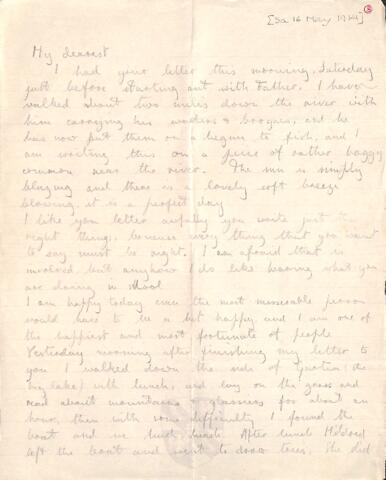 [Sa 16 May 1914]
My dearest
I had your letter this morning, Saturday
just before starting out with Father. I have
walked about two miles down the river with
him carrying his waders & brogues, and he
has now put them on & begun to fish, and I
am writing this on a piece of rather boggy
common near the river. The sun is simply
blazing and there is a lovely soft breeze
blowing. it is a perfect day
I like your letter awfully you write just the
right things, because every thing that you want
to say must be right. I am afraid that is
involved but anyhow I do like hearing what you
are doing in
I am happy today even the most miserable person
would have to be a bit happy and I am one of
the happiest and most fortunate of people
Yesterday morning after finishing my letter to
you I walked down the side of (the
big lake) with lunch, and lay on the grass and
read about mountains & glassiers for about an
hour, then with some difficulty I found the
boat and we had lunch. After lunch Mildred
left the boat and went to draw trees, she did